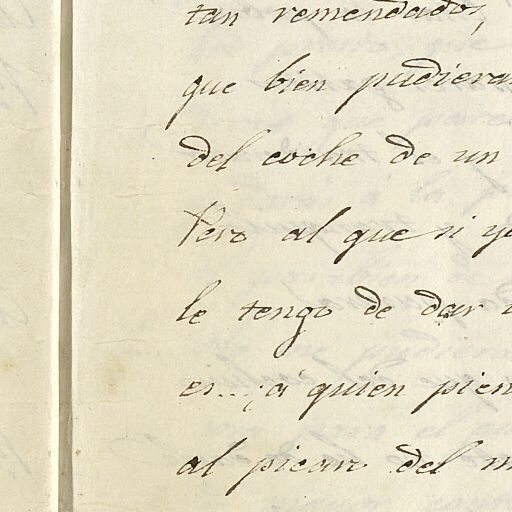 tan remendados,
que bien pudiera
del coche de un
Pero al que si yo
le tengo de dar
es... ¿á quien pien
al picaro del m